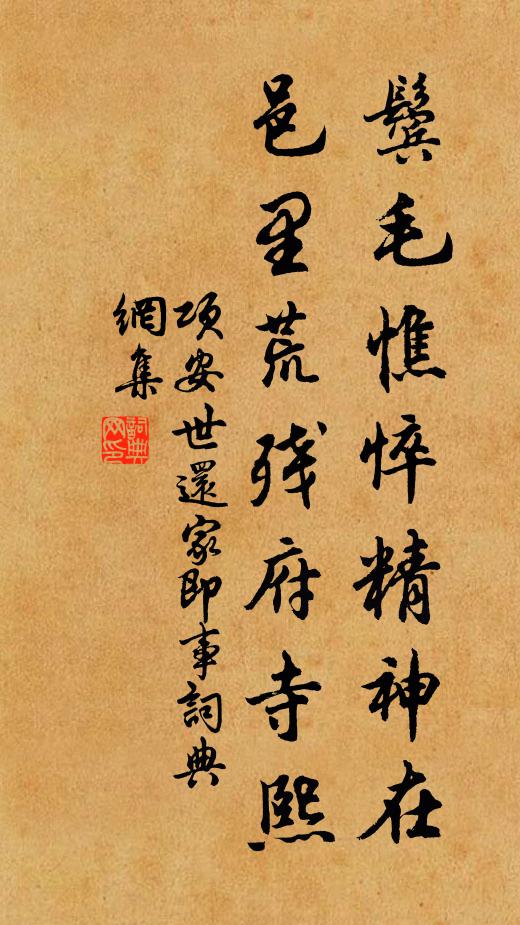 鬓毛憔悴精神在
邑里荒残府寺熙
項安世還家即事詞典
網集
詞典网印